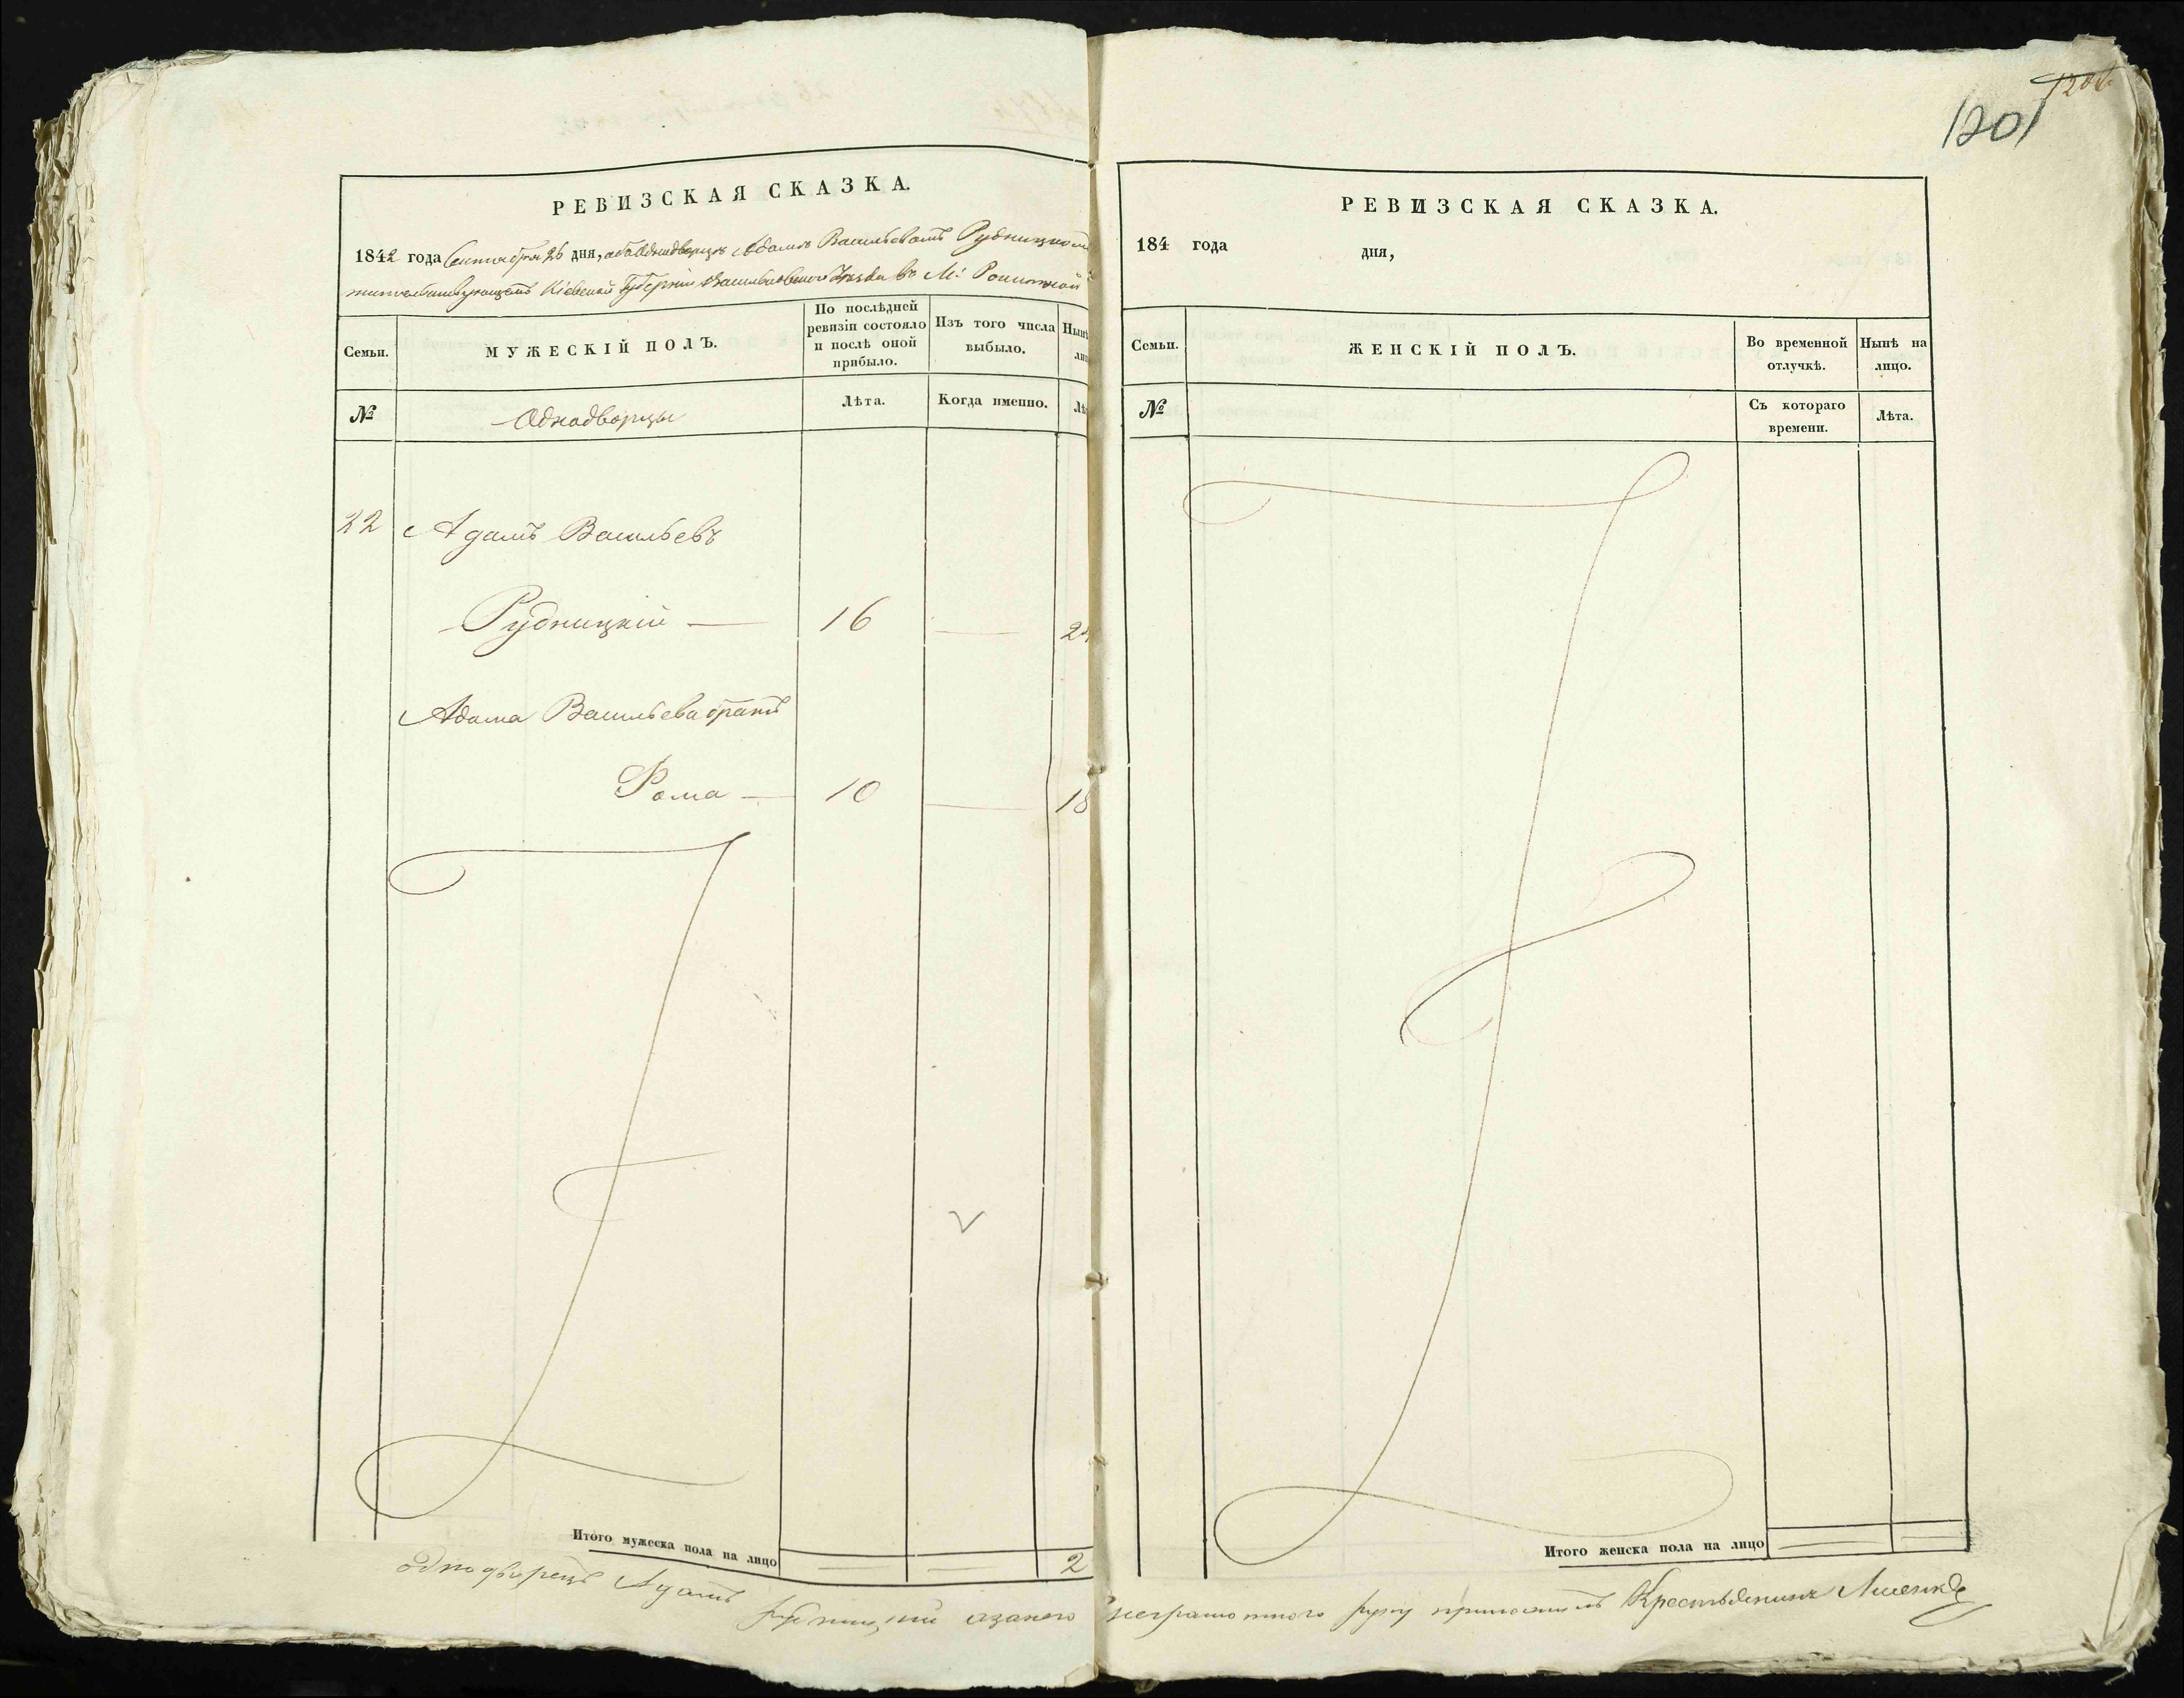 РЕВИЗСКАЯ СКАЗКА.
1842 года Сентября 26 дня, объ Однодворцѣ Адамѣ Васильевомъ Рудницкомъ
жительствующемъ Кіевской Губерніи Васильковскаго Уѣзда въ М:
Семьи.
МУЖЕСКІЙ ПОЛЪ.
По послѣдней ревизіи состояло и послѣ оной прибыло.
Изъ того числа выбыло.
№
Однодворцы
Лѣта.
Когда именно.
22 Адамъ Васильевъ
Рудницкій — 16 — 24
Адама Васильева братъ
Рома — 10 — 18
Итого мужеска пола на лицо — — 2
1201
РЕВИЗСКАЯ СКАЗКА.
184 года дня,
Семьи.
ЖЕНСКІЙ ПОЛЪ.
Во временной отлучкѣ.
Нынѣ на лицо.
№
Съ котораго времени.
Лѣта.
Итого женска пола на лицо — —
однодворецъ Адамъ Рудницкій азанего неграмотного руку приложилъ Крестьянинъ